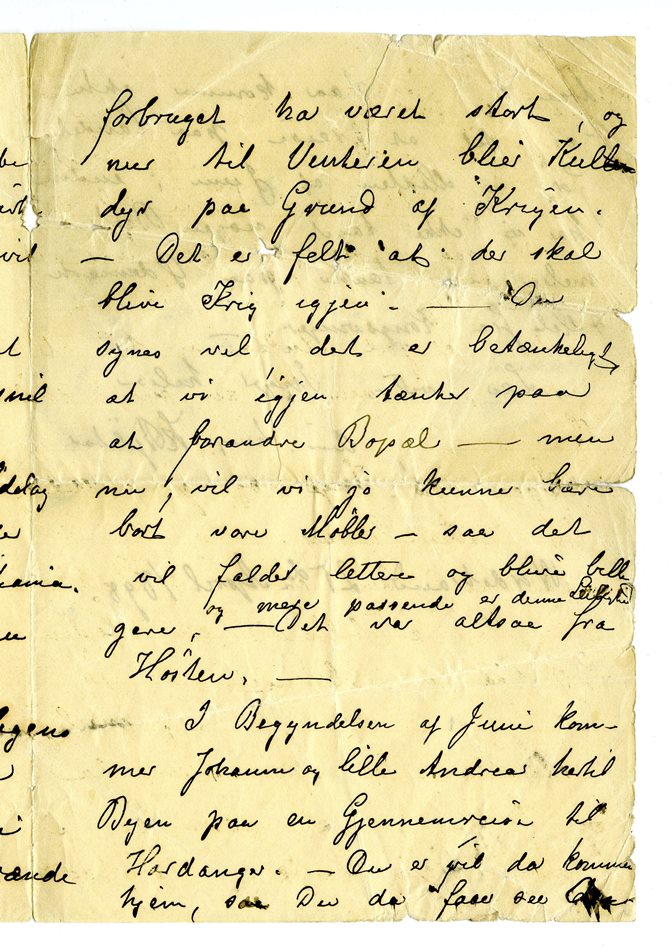 forbruget ha været stort, og
mer til Venteren blir Kullene
dyr paa Grund af Krigen.
– Det er felt at der skal
blive Krig igjen. — Du
synes vel det er betænkeligt,
at vi igjen tænker paa
at forandre Bopæl — men
nu, vil vi jo kunne bære
bort vore Møbler – saa det
vil falde lettere og blive billi
og mere passende er denne Leilighed
gere, — Det var altsaa fra
Hösten. —
I Begyndelsen af Juni kom-
mer Johanne og lille Andrea hertil
Byen paa en Gjennemreise til
Hardanger. – Du er vel da kommen
hjem, saa Du da faar see
vil
t
snil
delag
er
kania.
en
legens
ænde